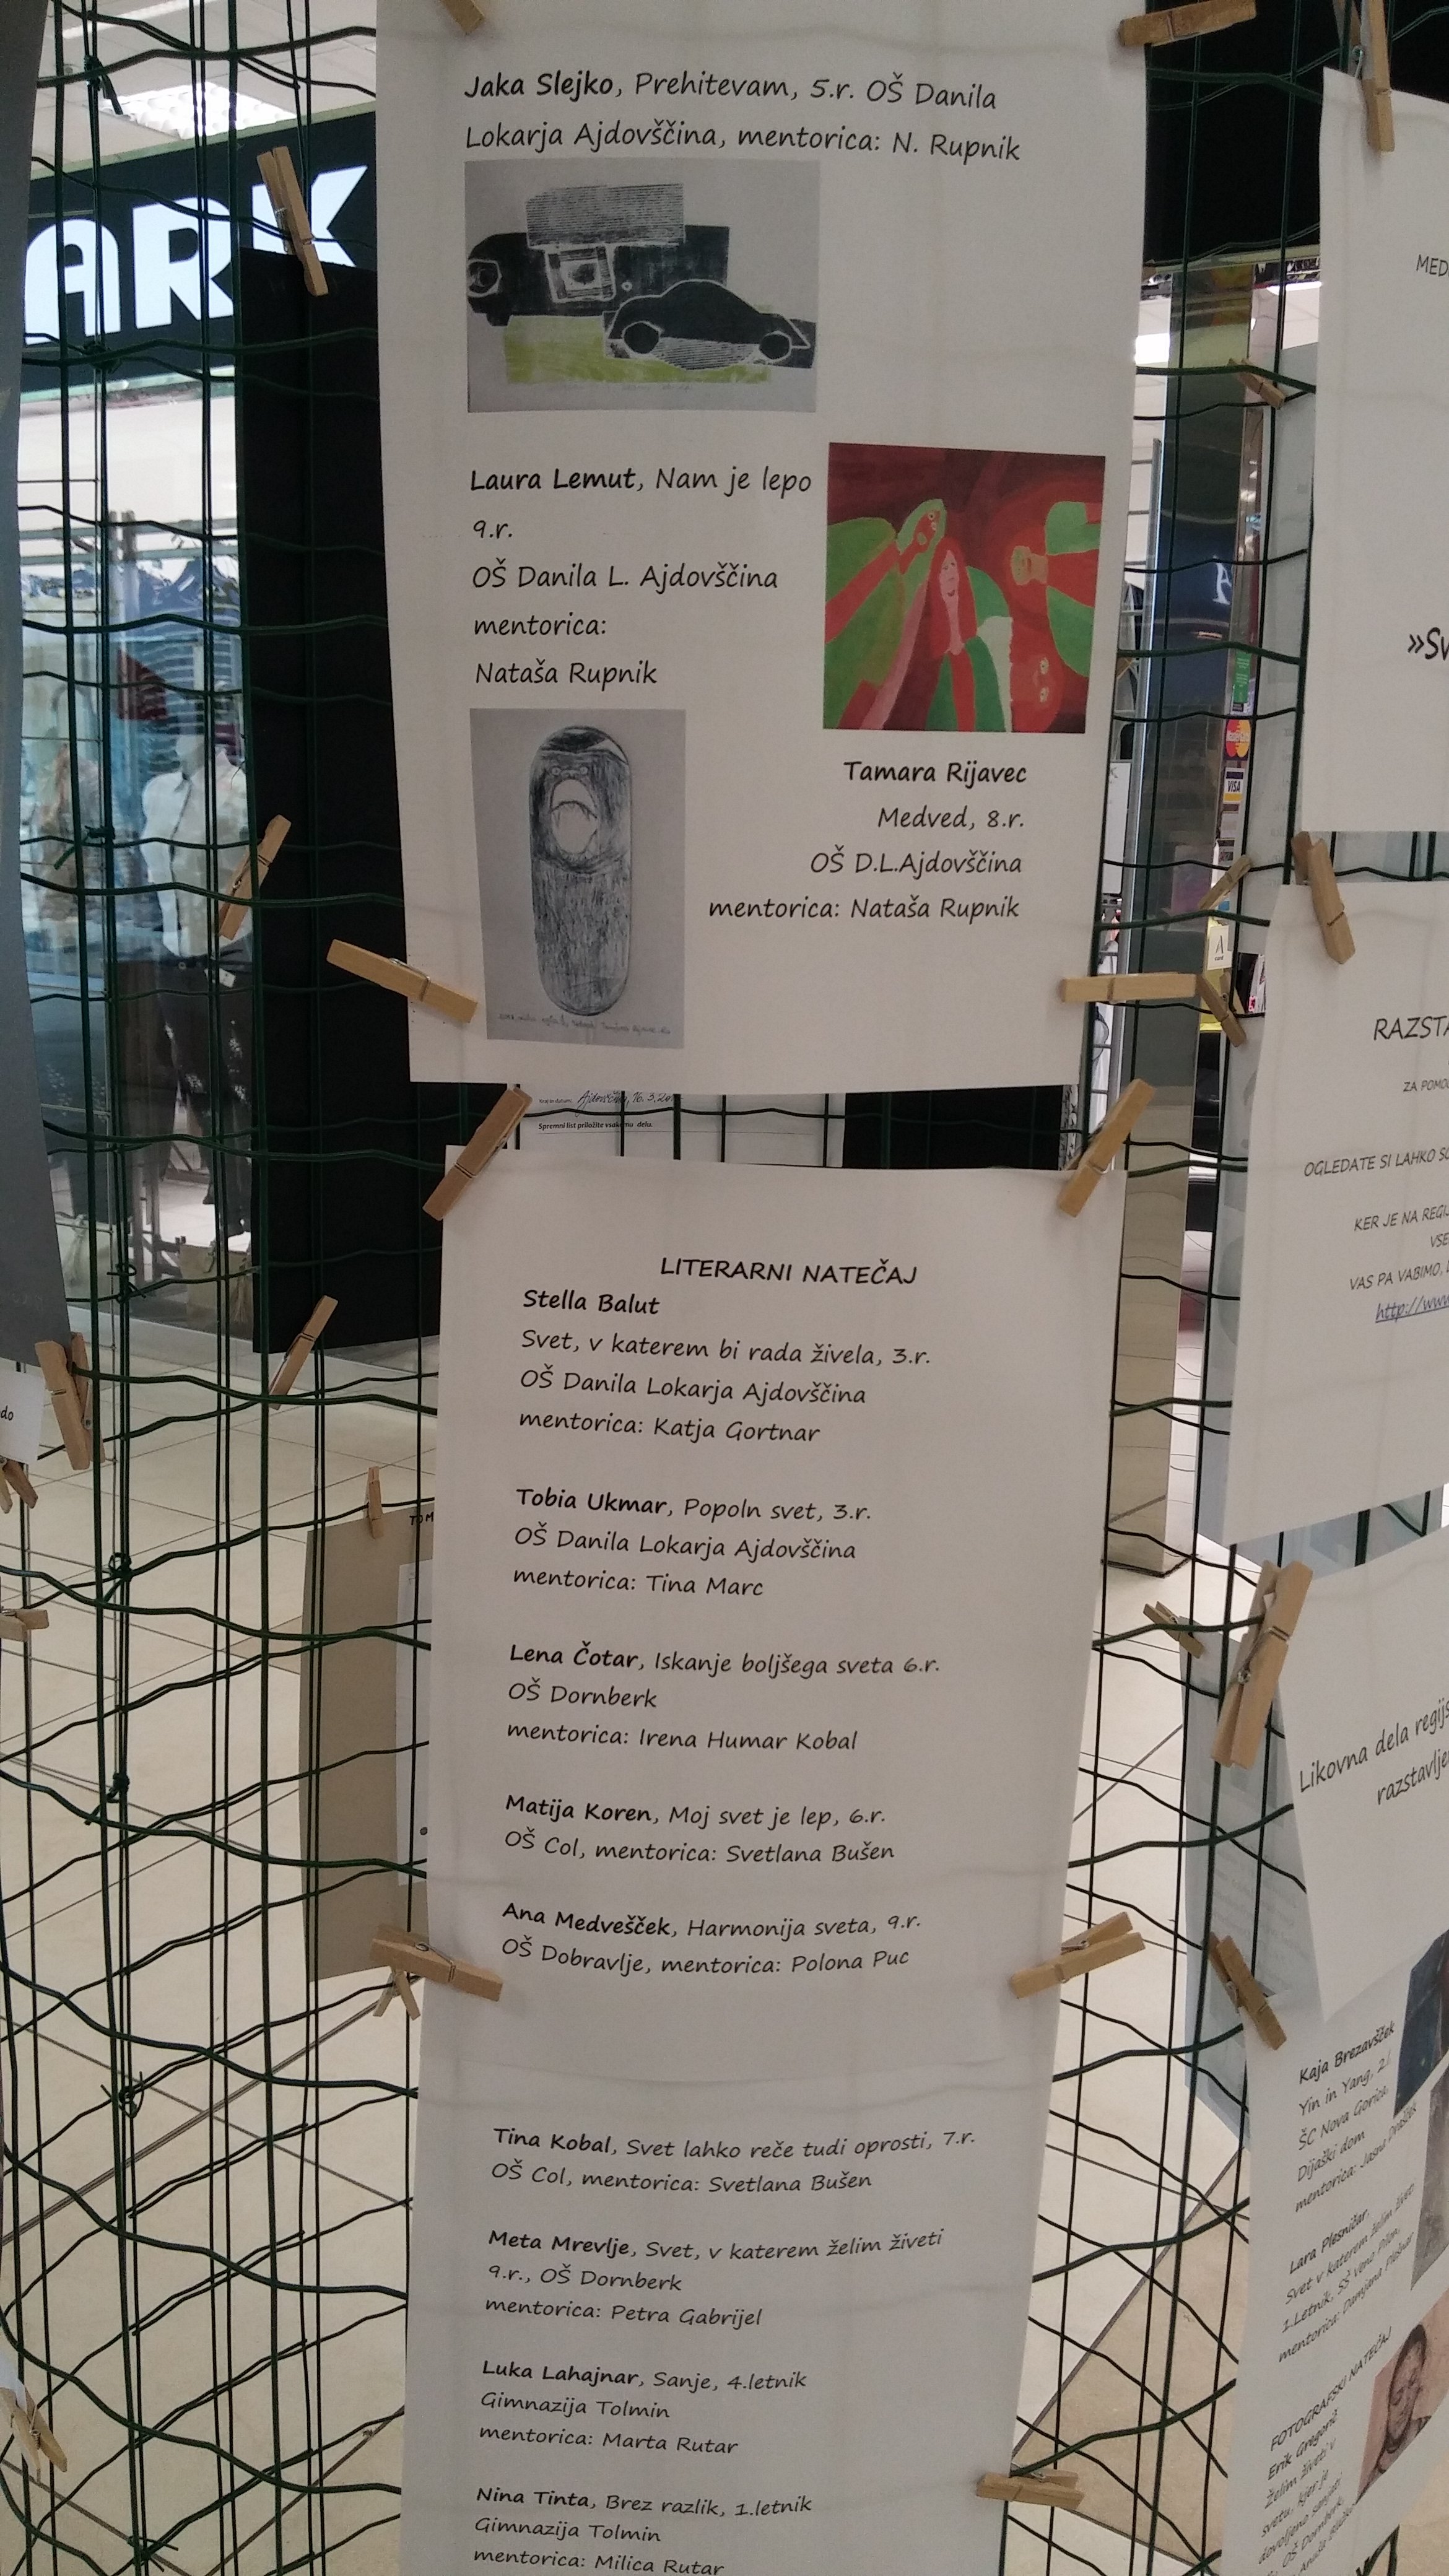 ARK
Jaka Slejko, Prehitevam, 5.r. OŠ Danila
Lokarja Ajdovščina, mentorica: N. Rupnik
Laura Lemut, Nam je lepo
9.r.
OŠ Danila L. Ajdovščina
mentorica:
Nataša Rupnik
Tamara Rijavec
Medved, 8.r.
OŠ D.L.Ajdovščina
mentorica: Nataša Rupnik
Ajdovščina, 16.3.20
Spremni list priložite vsakemu delu.
LITERARNI NATEČAJ
Stella Balut
Svet, v katerem bi rada živela, 3.r.
OŠ Danila Lokarja Ajdovščina
mentorica: Katja Gortnar
Tobia Ukmar, Popoln svet, 3.r.
OŠ Danila Lokarja Ajdovščina
mentorica: Tina Marc
Lena Čotar, Iskanje boljšega sveta 6.r.
OŠ Dornberk
mentorica: Irena Humar Kobal
Matija Koren, Moj svet je lep, 6.r.
OŠ Col, mentorica: Svetlana Bušen
Ana Medvešček, Harmonija sveta, 9.r.
OŠ Dobravlje, mentorica: Polona Puc
Tina Kobal, Svet lahko reče tudi oprosti, 7.r.
OŠ Col, mentorica: Svetlana Bušen
Meta Mrevlje, Svet, v katerem želim živeti
9.r., OŠ Dornberk
mentorica: Petra Gabrijel
Luka Lahajnar, Sanje, 4.letnik
Gimnazija Tolmin
mentorica: Marta Rutar
Nina Tinta, Brez razlik, 1.letnik
Gimnazija Tolmin
mentorica: Milica Rutar
MED
»Sv
RAZSTA
ZA POMO
OGLEDATE SI LAHKO SO
KER JE NA REGI
VSE
VAS PA VABIMO,
http://www
Likovna dela regijs
razstavlje
Kaja Brezavšček
Yin in Yang, 2.
ŠC Nova Gorica
Dijaški dom
mentorica: Jasna
Lara Plesničar,
Svet v katerem želim živeti
1.Letnik, SŠ Vena Pilon,
mentorica: Damjana
FOTOGRAFSKI NATEČAJ
Erik Gregorič
Želim živeti v
svetu, kjer je
dovoljeno sanjati
OŠ Dornberk
MasterCard
VISA
do
TOM